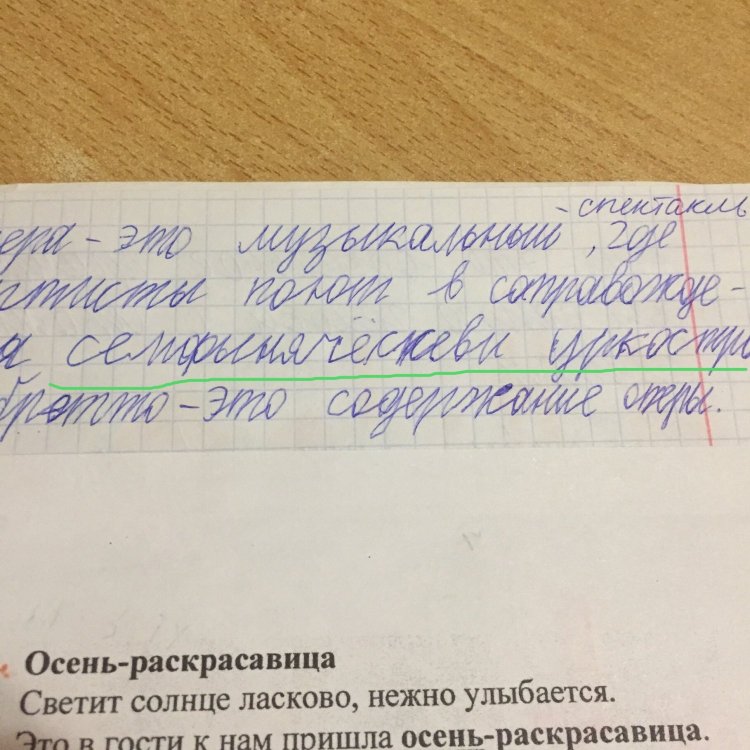 - спектакль
ера - это музыкальный, где
тисты поют в соправожде-
я семфыняческеви уркостро
бретто - это содержание оперы.
Осень-раскрасавица
Светит солнце ласково, нежно улыбается.
Это в гости к нам пришла осень-раскрасавица.